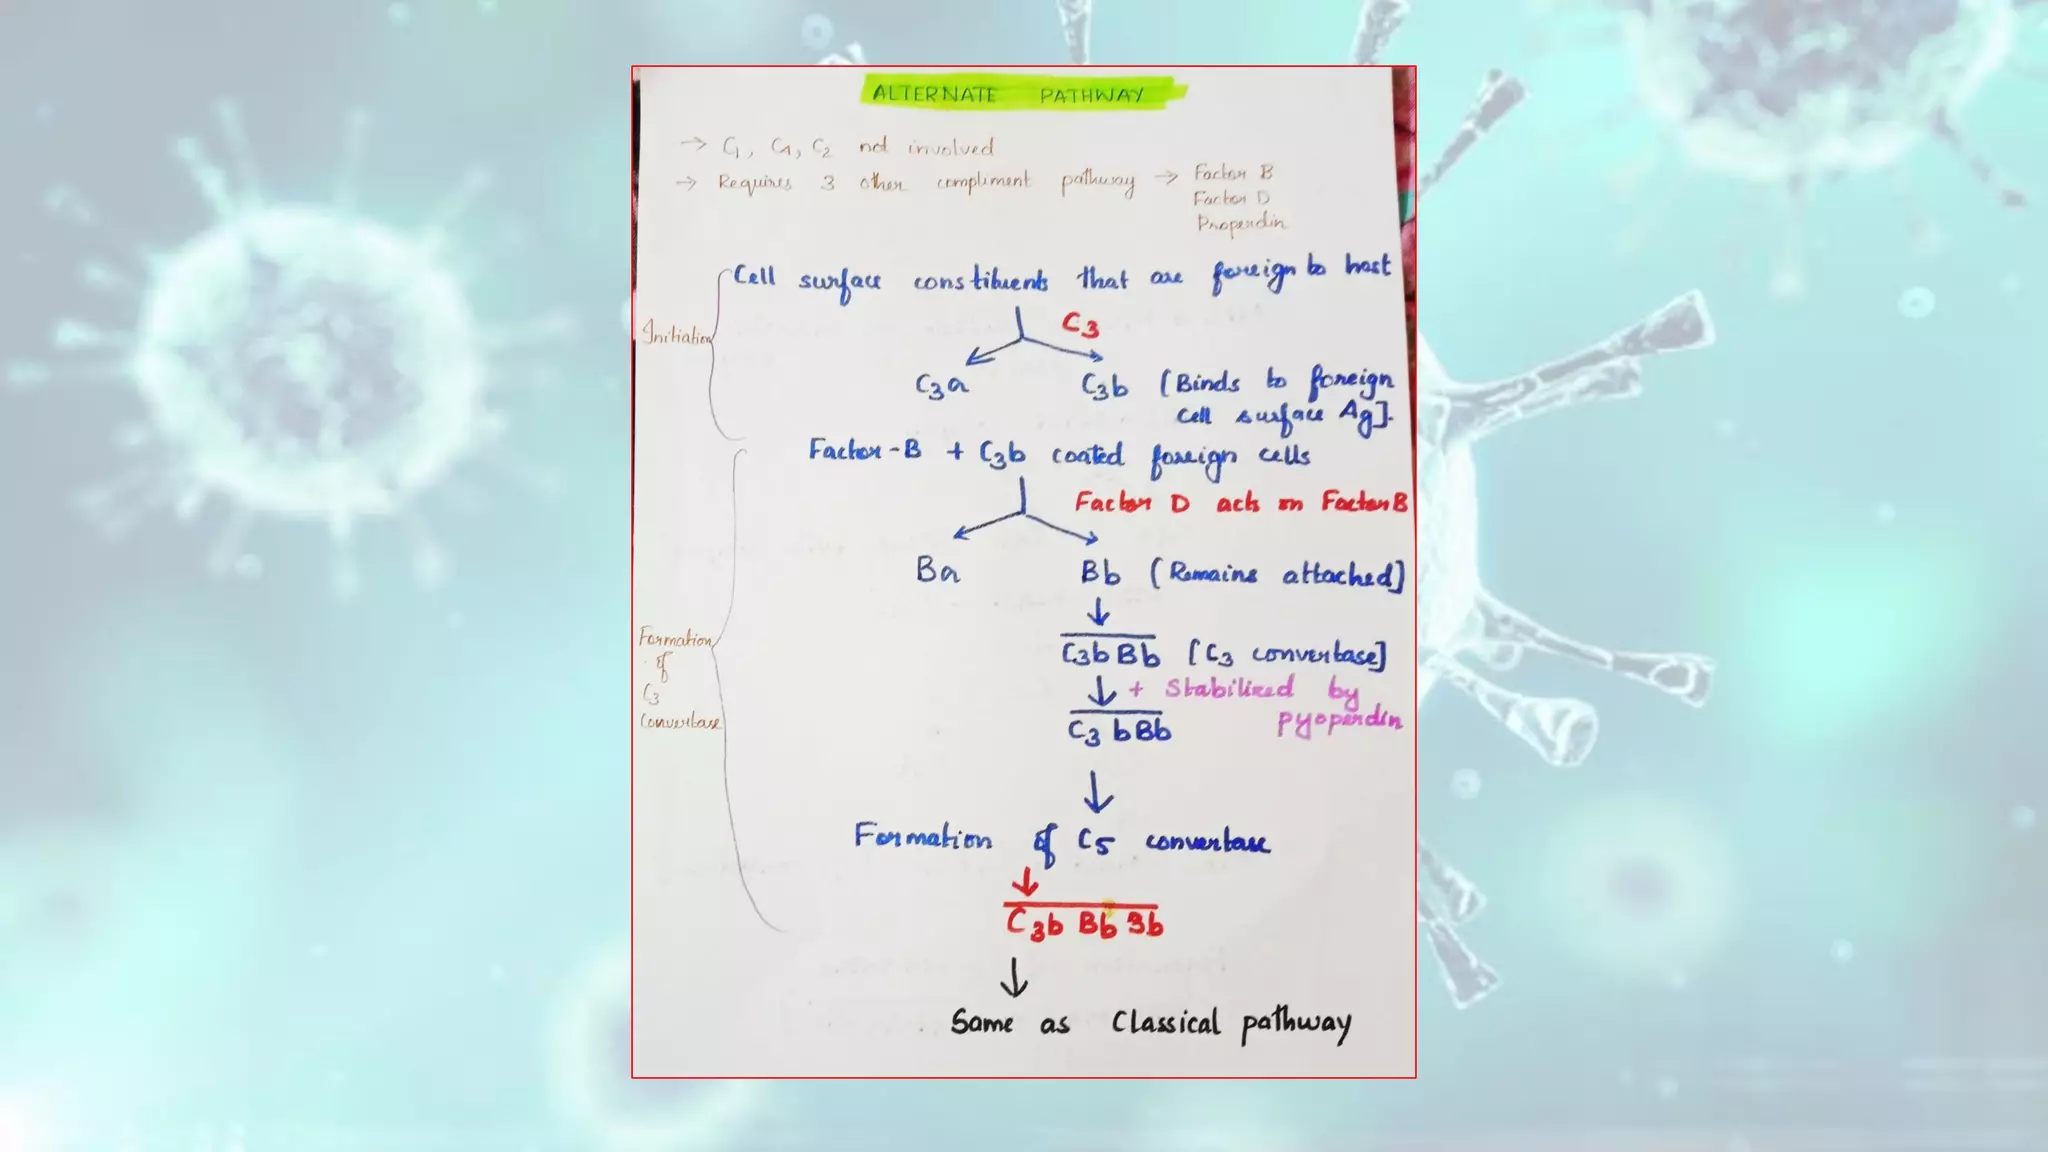 ALTERNATE PATHWAY
→ C1, C4, C2 not involved
→ Requires 3 other compliment pathway → Factor B
Factor D
Properdin
Cell surface constituents that are foreign to host
Initiation
C3
C3a C3b [Binds to foreign
cell surface Ag].
Factor-B + C3b coated foreign cells
Factor D acts on Factor B
Ba Bb [Remains attached]
Formation
of
C3
convertase
C3bBb [C3 convertase]
+ Stabilized by
pyoperdin
C3 bBb
Formation of C5 convertase
C3b Bb 3b
Same as Classical pathway